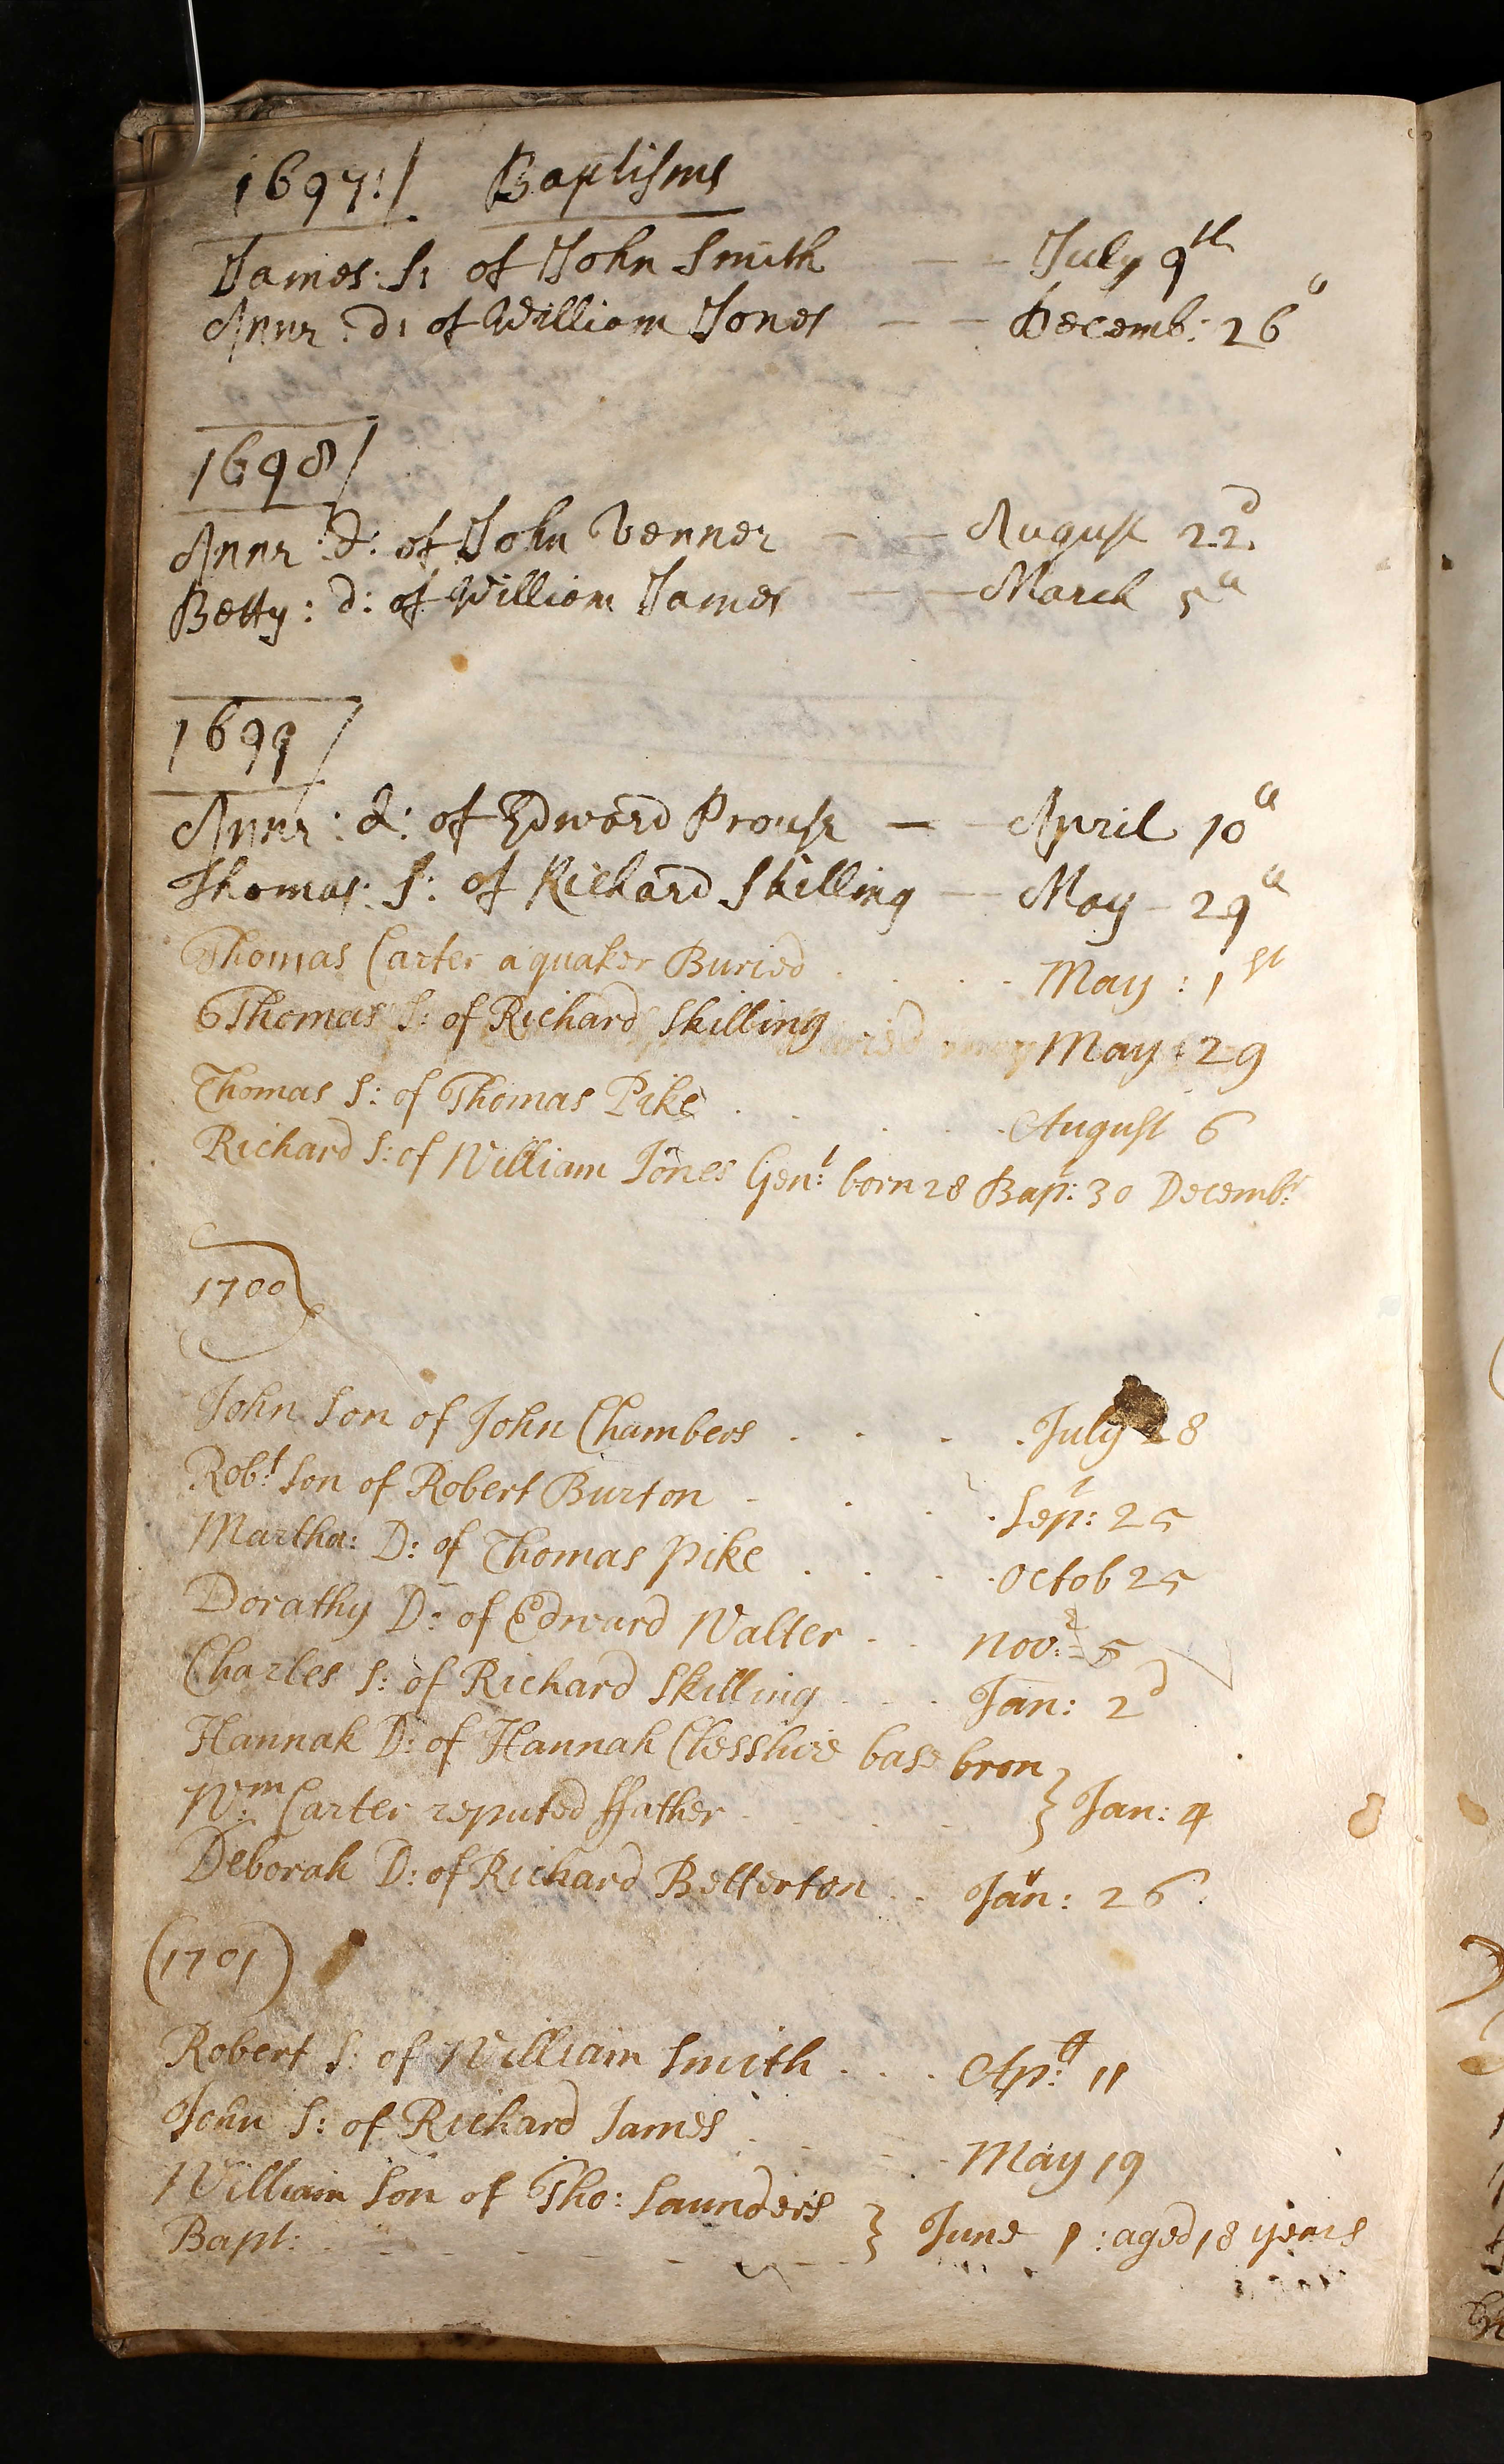 1697:/ Baptisms
James: S: of John Smith - - July 9th
Anne: d: of William Jones - - Decemb: 26th
1698/
Anne: d: of John Venner - - August 22d
Betty: d: of William James - - March 5th
1699/
Anne: d: of Edward Prouse - - April 10th
Thomas: S: of Richard Skilling - May - 29th
Thomas Carter a quaker Buried . . . May : 1st
Thomas S: of Richard Skilling May : 29
Thomas S: of Thomas Pike . . . . August 6
Richard S: of William Jones Gent: born 28 Bapt: 30 Decembr:
1700
John Son of John Chambers . . . . July 28
Robt: Son of Robert Burton - . . . Sept: 25
Martha: D: of Thomas Pike . . . . Octob 25
Dorathy D: of Edward Walter . . . Novr: 5
Charles S: of Richard Skilling . . . Jan: 2d
Hannah D: of Hannah Chesshire base bron
Wm: Carter reputed ffather . . . . } Jan: 4
Deborah D: of Richard Betterton . . Jan: 26
(1701)
Robert S: of William Smith . . . Ap: 11
John S: of Richard James . . . . May 19
William Son of Tho: Saunders
Bapt: - - - - - } June 1 : aged 18 years